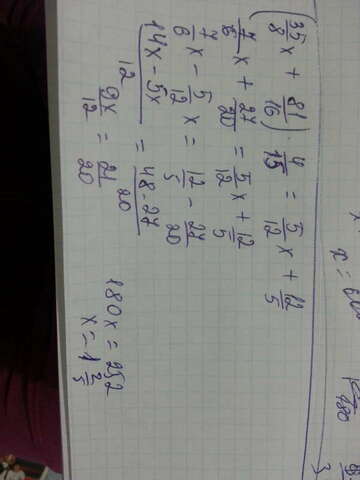 (35/8 x + 81/16) · 4/15 = 5/12 x + 12/5
7/6 x + 27/20 = 5/12 x + 12/5
7/6 x - 5/12 x = 12/5 - 27/20
14x - 5x / 12 = 48 - 27 / 20
9x/12 = 21/20
180x = 252
x = 1 2/5
x =
180